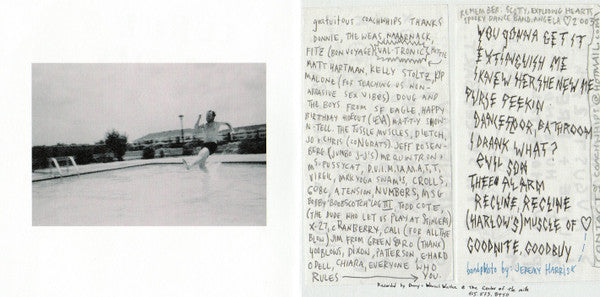 gratuitous coachwhips thanks
DONNIE, THE WEAS, NMAPNACK,
FITZ (BON VOYAGE) EVAL-TRONICS,
MATT HARTMAN, KELLY STOLTZ, KIP
MALONE (FOR TEACHING US NON-
ABRASIVE SEX VIBES) DOUG AND
THE BOYS FROM SF EAGLE, HAPPY
BIRTHDAY HIDEOUT MATTY SHOW
N-TELL. THE TUSSLE MUSCLES, DUETCH,
JO & CHRIS (CONGRATS) JEFF ROSEN-
BERG (JUMBO J-J'S) MR QUINTRON &
MS. PUSSYCAT, D.U.I.M, I.A.M.A.S.T.,
VIRGIL, DARK YOGA SWAMIS, CROLLS,
GUBE, A TENSION, NUMBERS, MSG
BOBBY "BOBBSCOTCH" LOG III, TODD COTE,
(THE DUDE WHO LET US PLAY AT SPINGERS)
X-27, CRANBERRY, CALI (FOR ALL THE
BLOW) JIM FROM GREENSBORO (THANX)
400 BLOWS, DIXON, PATTERSON & HARD
O'DELL, CHIARA, EVERYONE WHO
RULES YOU.
REMEMBER: SCOTTY, EXPLODING HEARTS,
SPOCKY DANCE BAND, ANGELA ♡ 2003
YOU GONNA GET IT
EXTINGUISH ME
I KNEW HER SHE NEW ME
PURSE PEEKIN
DANCEFLOOR, BATHROOM
I DRANK WHAT?
EVIL SON
THEEE ALARM
RECLINE, RECLINE
(HARLOW'S) MUSCLE OF ♡
GOODNITE, GOODBUY
band photo by JEREMY HARRIS
Recorded by @ The Center of the mile